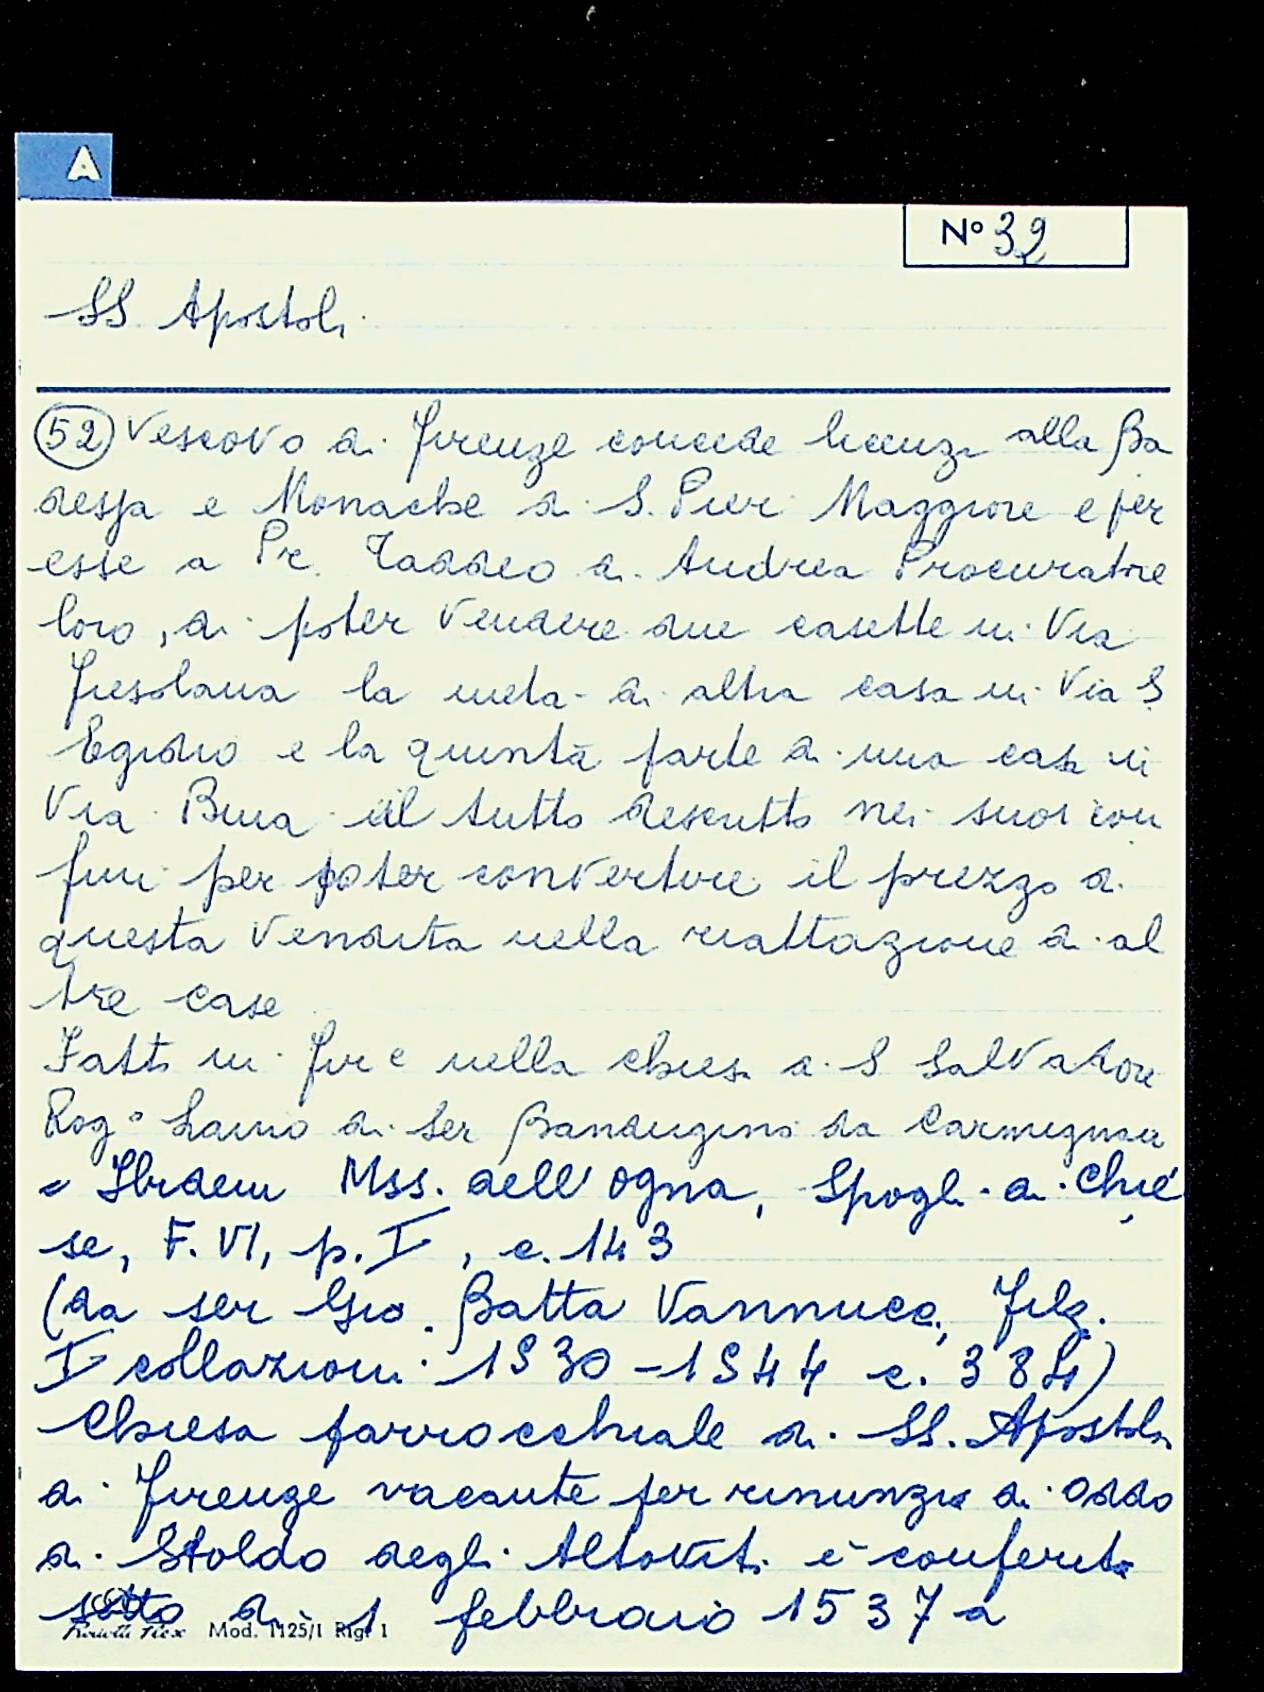 A
N° 32
SS. Apostoli
(52) Vescovo di Firenze concede licenza alla Ba
dessa e Monache di S. Pier Maggiore e per
esse a Pr. Taddeo di Andrea Procuratore
loro, di poter vendere due casette in Via
Fiesolana la metà di altra casa in Via S.
Egidio e la quinta parte di una casa in
Via Buia il tutto descritto nei suoi con
fini per poter convertire il prezzo di
questa vendita nella riattazione di al
tre case
Fatto in Fire nella chiesa di S Salvatore
Rog° Lamo di ser Bandugino da Carmignan
= Ibidem Mss. dell'Ogna, Spogli di Chie
se, F. VI, p. I, c. 143
(da ser Gio. Batta Vannucci, Filz.
I collazioni 1530-1544 c. 384)
Chiesa parrocchiale di SS. Apostoli
di Firenze vacante per rinunzia di Oddo
di Stoldo degli Altoviti è conferita
sotto di 1 febbraio 1537 a
Mod. 1125/1 Rig. 1